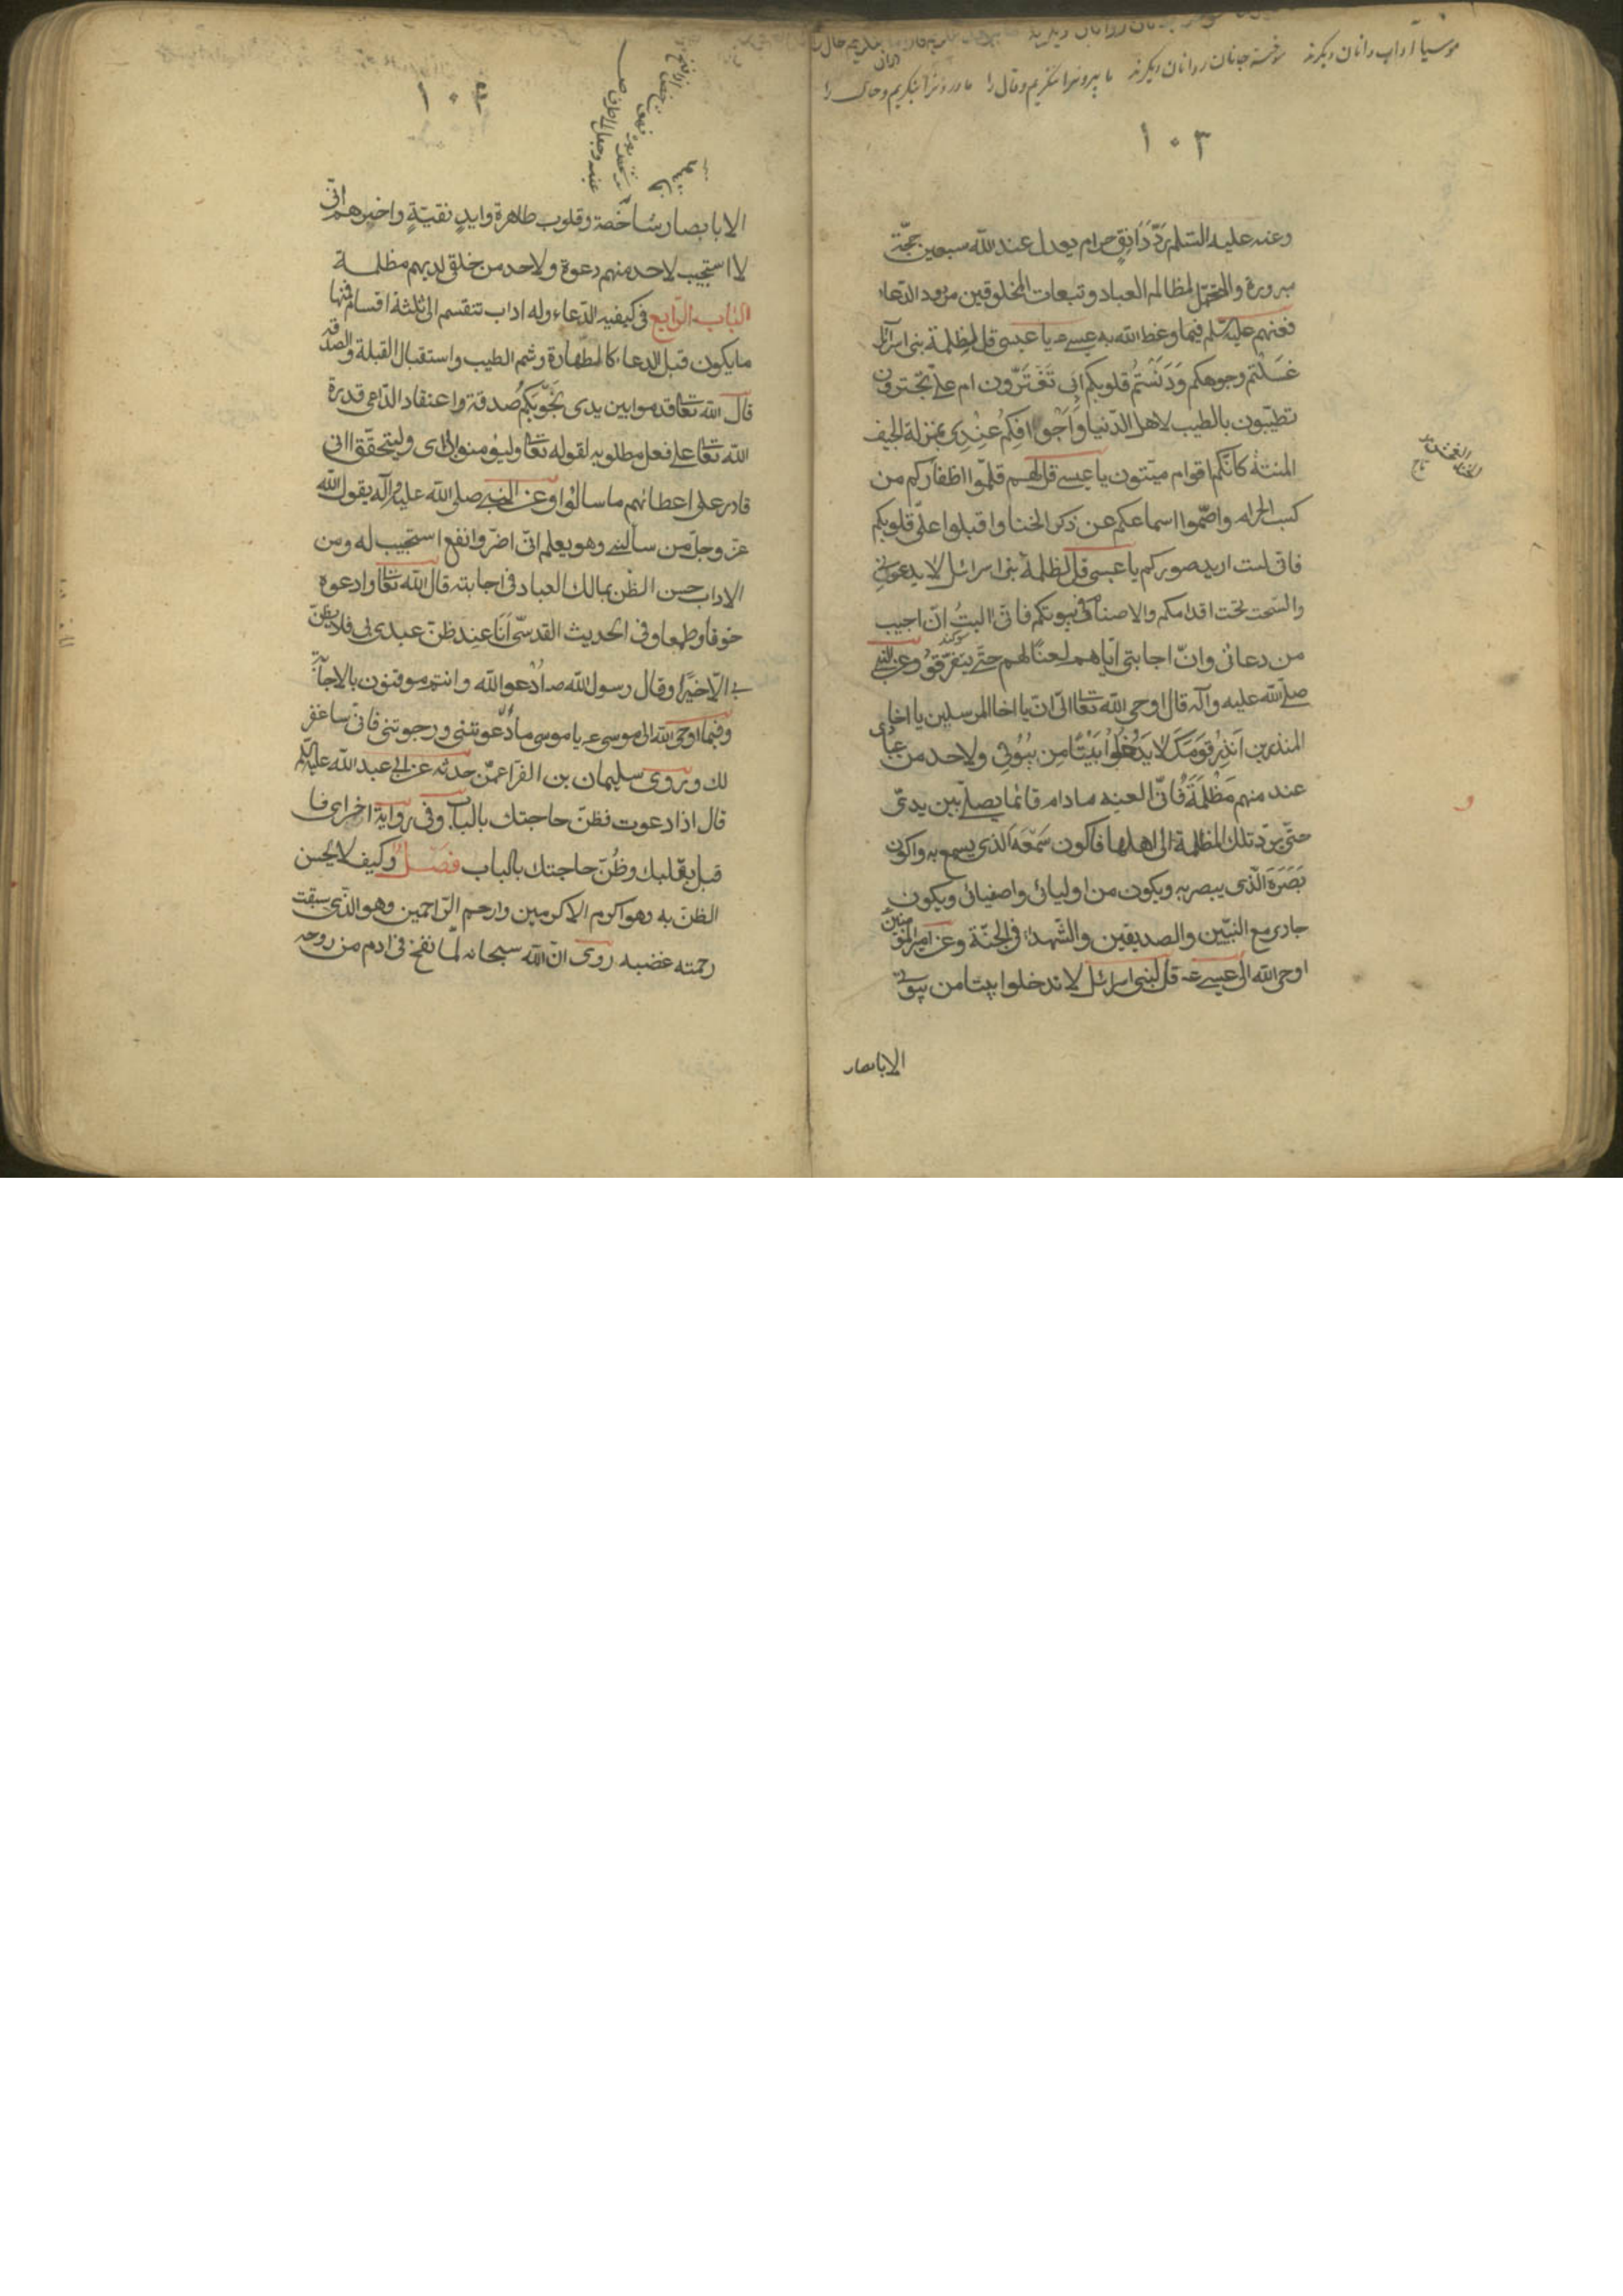 موسیا آداب دانان دیگرند سوخته جانان روانان دیگرند ما برونرا ننگریم و قال را ما درونرا بنگریم و حال را
۱۰۳
وعنه عليه السّلم ردّ دَانِقٍ حرام يعدل عند اللّه سبعين حجّة
مبرورة والمتحمّل لمظالم العباد وتبعات المخلوقين مردود الدّعا
فعنهم عليه سّلم فيما وعظ اللّه به عيسى ع يا عيسى قل لظلمة بنى اسرآئل
غسلتم وجوهكم وَدَنَسْتُم قلوبكم ابى تَغْتَرّون ام علىّ تجترون
تطيّبون بالطيب لاهل الدّنيا وَاَجْوافكُم عِنْدِى بمنزلة الجيف
المنتنة كانّكم اقوام ميّتون يا عيسى قل لهم قلّموا اظفاركم من
كسب الحرام واصّموا اسماعكم عن ذكر الخنا واقبلوا علىّ قلوبكم
فانى لست اريد صوركم يا عيسى قل لظلمة بنى اسرائل لا يدعونى
والسّحت تحت اقدامكم والاصنام فى بيوتكم فانى اليتُ انّ اجيب
سوكند
من دعانى وانّ اجابتى اياهم لعنًا لهم حتّى يتفرّقوُ وعن النبى
صلّى اللّه عليه وآله قال اوحى اللّه تعالى الىّ ان يا اخا المرسلين يا اخا
المنذرين اَنذِرْ قَومَكَ لا يَدْخُلُوا بَيْتًا مِن بُيُوتِى ولاحد من عبادى
عند منهم مَظْلَمَةٌ فَانى العنه مادام قائما يصلّى بين يدىّ
حتّى يردّ تلك المظلمة الى اهلها فاكون سَمْعَه الّذى يسمع به واكون
بَصَرَهَ الّذى يبصر به ويكون من اوليائى واصفيائى ويكون
جارى مع النبيّين والصديقين والشّهداء فى الجنّة وعن امير المؤمنين
اوحى اللّه الى عيسى ع قل لبنى اسرائل لا تدخلوا بيتا من بيوتى
الا بابصار
الا بابصار شاخصة وقلوب طاهرة وايدٍ نقيّةٍ واخبرهم انّى
لا استجيب لاحد منهم دعوة ولاحد من خلقى لديهم مظلمة
الباب الرّابع فى كيفيه الدّعاء وله اداب تنقسم الى ثلثة اقسام فمنها
ما يكون قبل الدعاء كالطهارة وشم الطيب واستقبال القبلة والصدقه
قال اللّه تعالى فقدموا بين يدى نجّوىكُم صدقة واعتقاد الدّاعى قدرة
اللّه تعالى على فعل مطلوبه لقوله تعالى وليؤمنوا بى اى وليتحقّق انى
قادر على اعطائهم ما سالوا وعن النبى صلى اللّه عليه وآله يقول اللّه
عزّ وجلّ من سألنى وهو يعلم انى اضرّ وانفع استجيب له ومن
الاداب حسن الظّن بمالك العباد فى اجابته قال اللّه تعالى وادعوه
خوفا وطمعا وفى الحديث القدسّى اَنَا عِند ظنّ عبدى بى فلا يظنّ
بى الّا خيرًا وقال رسول اللّه ص اُدْعوا اللّه وانتم موقنون بالاجابة
وفيما اوحى اللّه الى موسى ع يا موسى ما دعوتنى ورجوتنى فانى ساغفر
لك وروى سليمان بن الفرا عمّن حدثه عن ابى عبد اللّه عليه السّلم
قال اذا دعوت فظنّ حاجتك بالباب وفى رواية اخرى فا
قبل بقلبك وظُنّ حاجتك بالباب فصَـل وكيف لا يحسن
الظنّ به وهو اكرم الاكرمين وارحم الرّاحمين وهو الّذى سبقت
رحمته غضبه روى انّ اللّه سبحانه لمّا نفخ فى ادم من روحه